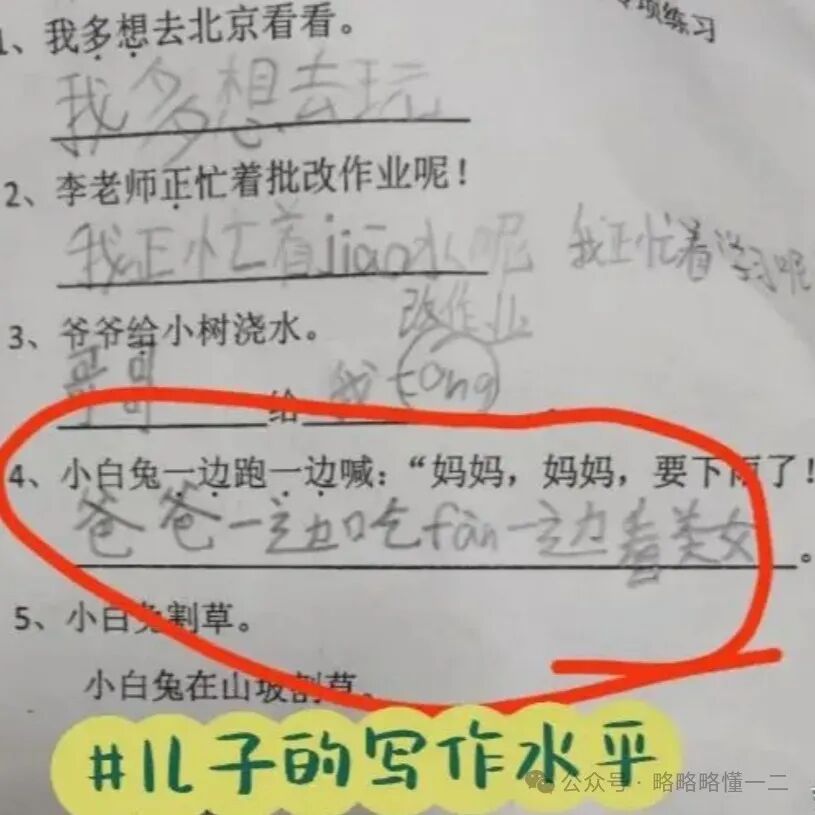 专项练习
1、我多想去北京看看。
我多想去玩
2、李老师正忙着批改作业呢！
我正忙着jiāo水呢 我正忙着学习呢
改作业
3、爷爷给小树浇水。
哥哥给我tāng
4、小白兔一边跑一边喊：“妈妈，妈妈，要下雨了！
爸爸一边吃fàn一边看美女。
5、小白兔割草。
小白兔在山坡割草。
#儿子的写作水平
公众号·略略略懂一二